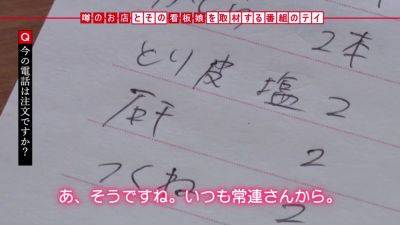 噂のお店とその看板娘を取材する番組のテイ
Q 今の電話は注文ですか?
2本
とり皮 塩 2
2
つくね 2
あ、そうですね。いつも常連さんから。